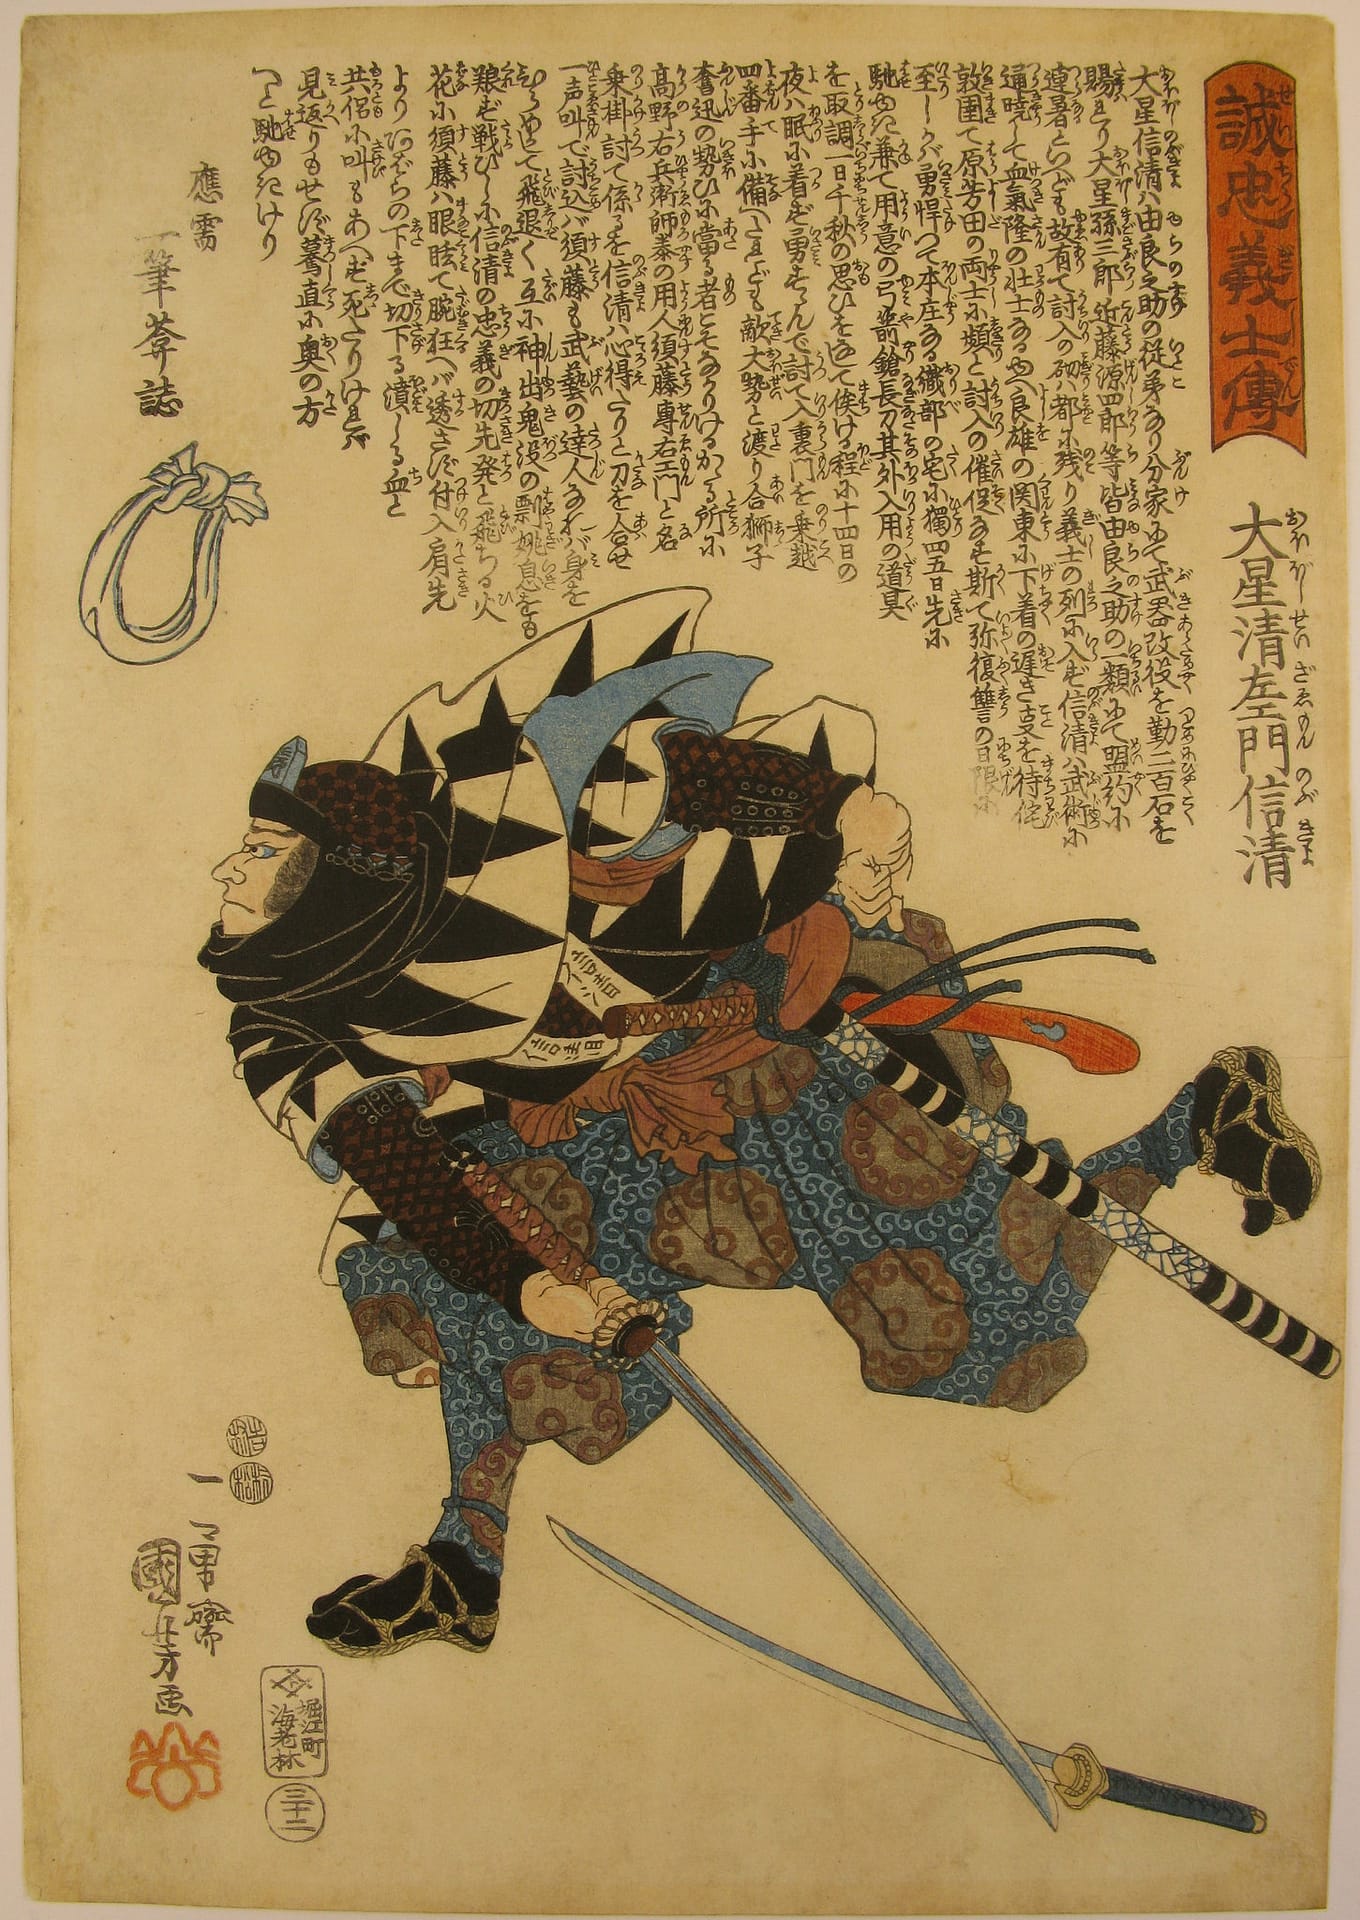 誠忠義士傳
大星清左エ門信清
大星信清ハ由良之助の従弟なり分家にて武器改役を勤二百石を
賜はり大星孫三郎近藤源四郎等皆由良之助の一類にて盟約に
連署といへども故有て討入の砌ハ都に残り義士の列に入ず信清ハ武術に
通暁して血氣隆の壮士なるゆへ良雄の関東に下着の遅き支を待侘
敦圉て原芳田の両士に頻と討入の催促なせも斯て弥復讐の日限に
至しかバ勇悍つて本庄なる織部の宅に獨四五日先に
馳ゆき兼て用意の弓箭鎗長刀其外入用の道具
を取調一日千秋の思ひをなして俟ける程に十四日の
夜ハ眠に着ず勇すゝんで討て入裏門を乗越
四番手に備へたれども敵大勢と渡り合獅子
奮迅の勢ひに當る者こそなかりけるかゝる所に
高野右兵衛師泰の用人須藤專右エ門と名
乗掛討て係るを信清ハ心得たりと刀を合せ
一声叫で討込バ須藤も武藝の達人なれバ身を
飛退く互に神出鬼没の剽姚息をも
艱ず戦ひしに信清の忠義の切先発と飛ちる火
花に須藤ハ眼眩て腕狂へバ透さず付入肩先
よりあばらの下まで切下る漬しる血と
共侶に叫もあへず死たりけれバ
見返りもせず驀直に奥の方
へと馳ゆきけり
應需
一筆菴誌
一勇齋
國芳画
堀江町
海老林
三十二